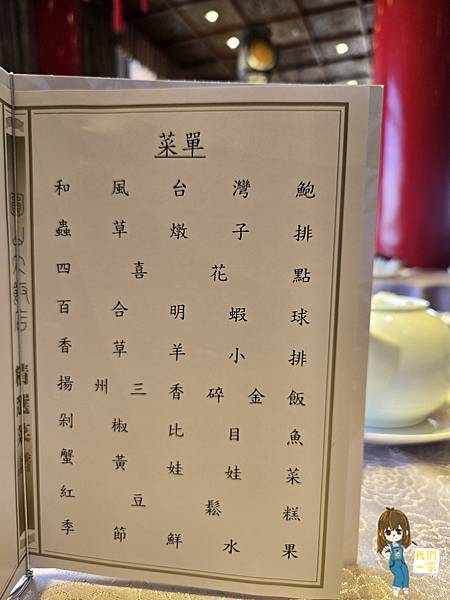 菜單
和風台灣鮑
蟲草燉子排
四喜花點
百合明蝦球
香草羊小排
揚州三香碎金飯
剁椒比目魚
蟹黃娃娃菜
紅豆鬆糕
季節鮮水果
圓山大飯店
精選菜譜
我們
一家